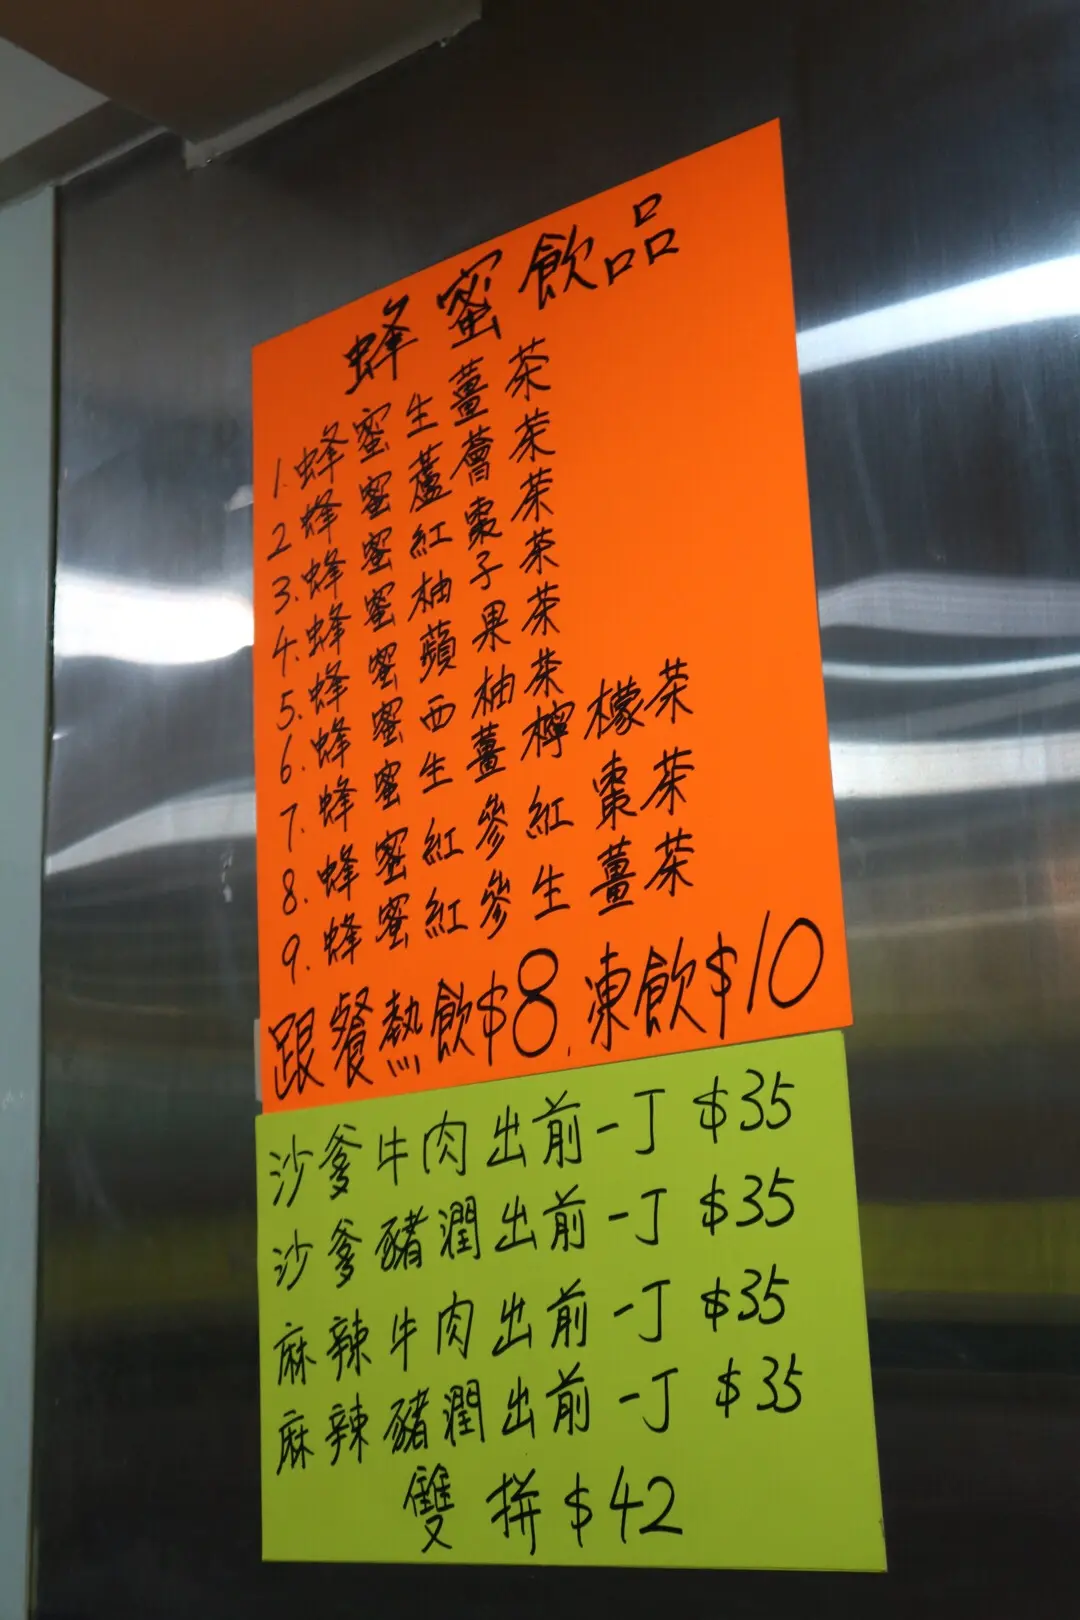 蜂蜜飲品
1. 蜂蜜生薑茶
2 蜂蜜蘆薈茶
3. 蜂蜜紅棗茶
4. 蜂蜜柚子茶
5. 蜂蜜蘋果茶
6. 蜂蜜西柚茶
7. 蜂蜜生薑檸檬茶
8. 蜂蜜紅參紅棗茶
9. 蜂蜜紅參生薑茶
跟餐熱飲$8, 凍飲$10
沙爹牛肉出前一丁 $35
沙爹豬潤出前一丁 $35
麻辣牛肉出前一丁 $35
麻辣豬潤出前一丁 $35
雙拼 $42